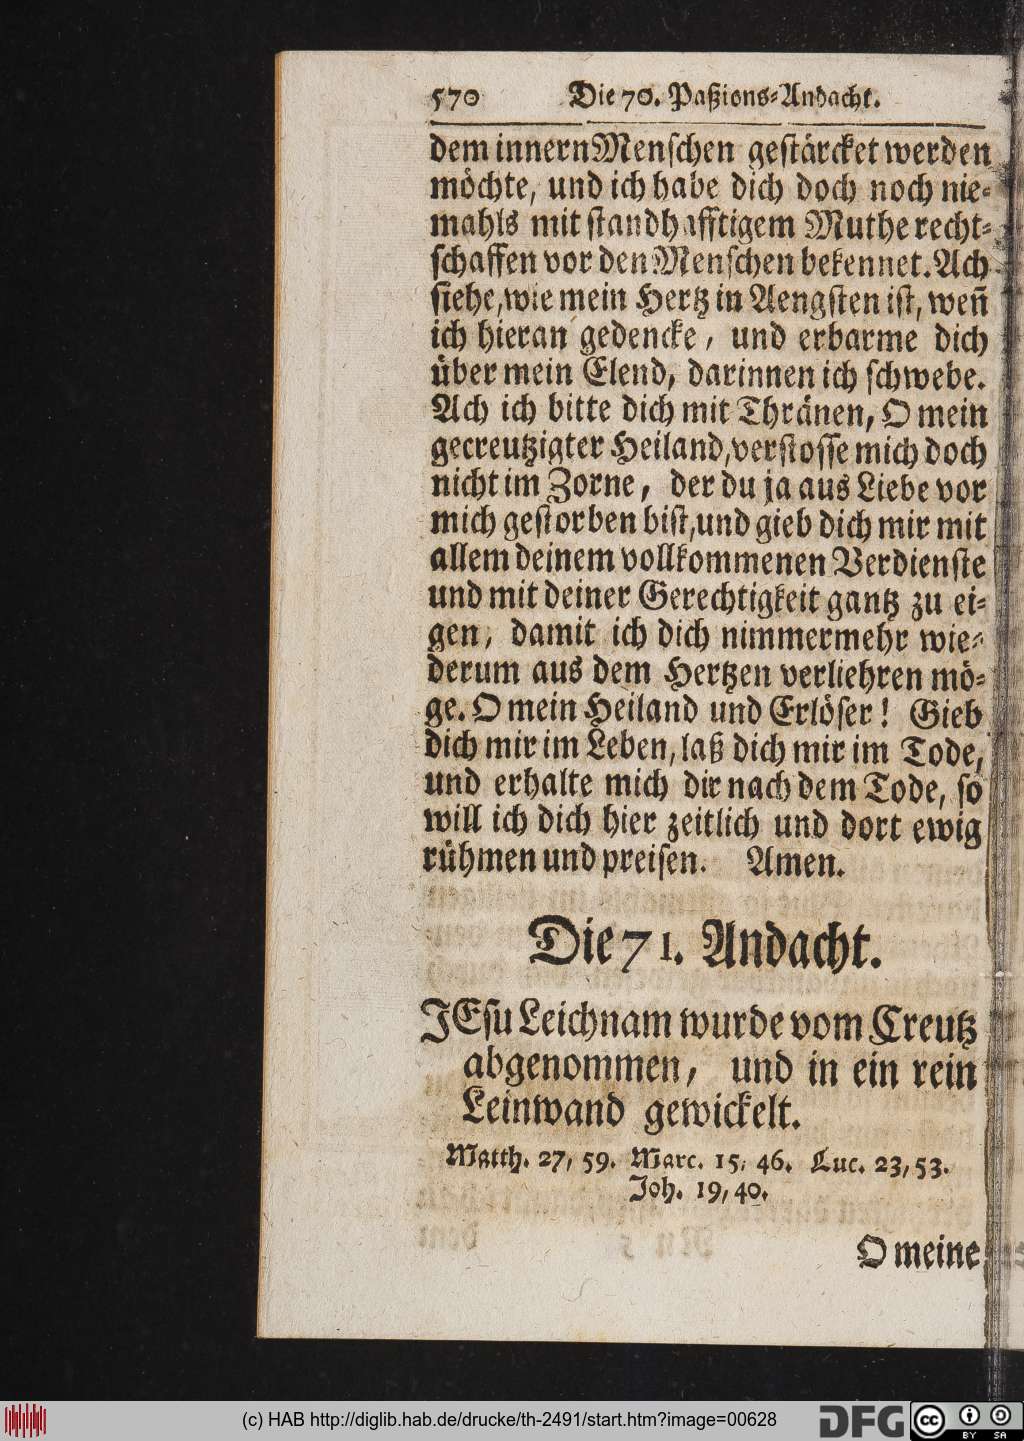 570 Die 70. Paßions-Andacht.
dem innern Menschen gestärcket werden
möchte, und ich habe dich doch noch nie-
mahls mit standhafftigem Muthe recht-
schaffen vor den Menschen bekennet. Ach
siehe, wie mein Hertz in Aengsten ist, weñ
ich hieran gedencke, und erbarme dich
über mein Elend, darinnen ich schwebe.
Ach ich bitte dich mit Thränen, O mein
gecreutzigter Heiland, verstosse mich doch
nicht im Zorne, der du ja aus Liebe vor
mich gestorben bist, und gieb dich mir mit
allem deinem vollkommenen Verdienste
und mit deiner Gerechtigkeit gantz zu ei-
gen, damit ich dich nimmermehr wie-
derum aus dem Hertzen verliehren mö-
ge. O mein Heiland und Erlöser! Gieb
dich mir im Leben, laß dich mir im Tode,
und erhalte mich dir nach dem Tode, so
will ich dich hier zeitlich und dort ewig
rühmen und preisen. Amen.
Die 71. Andacht.
JEsu Leichnam wurde vom Creutz
abgenommen, und in ein rein
Leinwand gewickelt.
Matth. 27, 59. Marc. 15, 46. Luc. 23, 53.
Joh. 19, 40.
O meine
(c) HAB http://diglib.hab.de/drucke/th-2491/start.htm?image=00628
DFG
cc BY SA